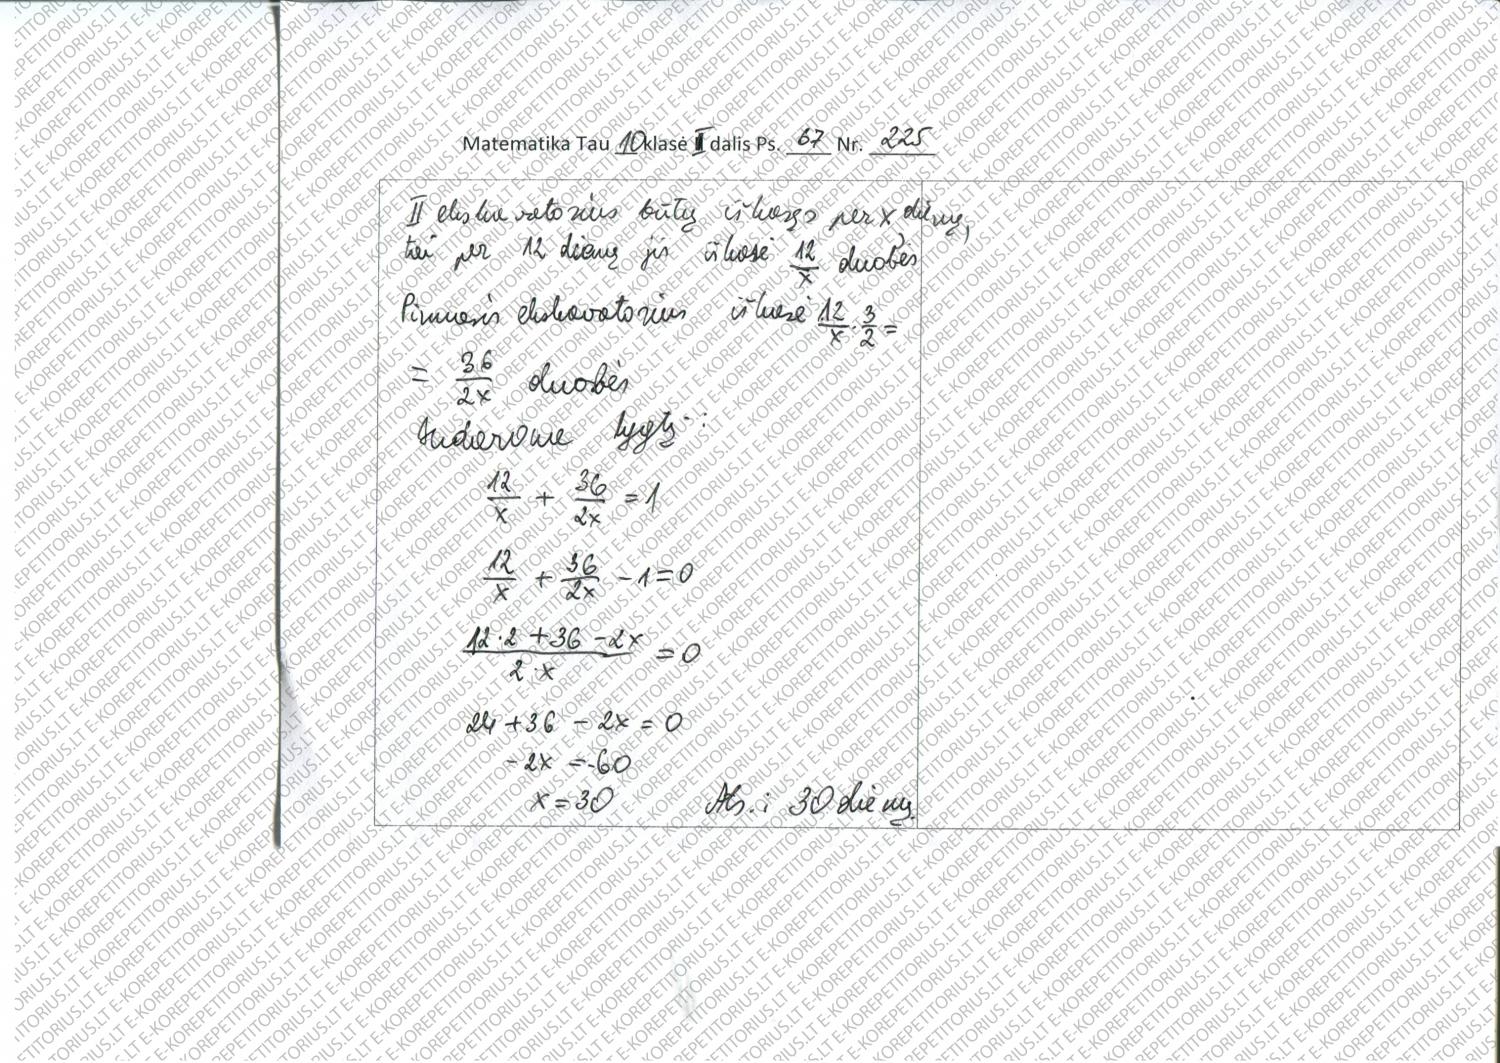 Matematika Tau 10 klasė I dalis Ps. 67 Nr. 225
II ekskavatorius būtų iškasęs per x dienų,
tai per 12 dienų jis iškasė 12/x duobės
Pirmasis ekskavatorius iškasė 12/x · 3/2 =
= 36/2x duobės
Sudarome lygtį:
12/x + 36/2x = 1
12/x + 36/2x - 1 = 0
12·2 + 36 - 2x / 2·x = 0
24 + 36 - 2x = 0
- 2x = -60
x = 30
Ats.: 30 dienų.
E-KOREPETITORIUS.LT